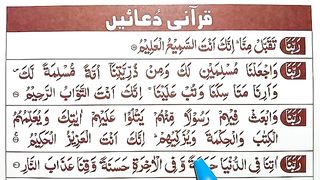 قرآنی دُعائیں
رَبَّنَا تَقَبَّلْ مِنَّا ؕ اِنَّكَ اَنْتَ السَّمِيْعُ الْعَلِيْمُ
رَبَّنَا وَاجْعَلْنَا مُسْلِمَيْنِ لَكَ وَمِنْ ذُرِّيَّتِنَآ اُمَّةً مُّسْلِمَةً لَّكَ
وَاَرِنَا مَنَاسِكَنَا وَتُبْ عَلَيْنَا ۚ اِنَّكَ اَنْتَ التَّوَّابُ الرَّحِيْمُ
رَبَّنَا وَابْعَثْ فِيْهِمْ رَسُوْلًا مِّنْهُمْ يَتْلُوْا عَلَيْهِمْ اٰيٰتِكَ وَيُعَلِّمُهُمُ
الْكِتٰبَ وَالْحِكْمَةَ وَيُزَكِّيْهِمْ ؕ اِنَّكَ اَنْتَ الْعَزِيْزُ الْحَكِيْمُ
رَبَّنَآ اٰتِنَا فِی الدُّنْيَا حَسَنَةً وَّفِی الْاٰخِرَةِ حَسَنَةً وَّقِنَا عَذَابَ النَّارِ